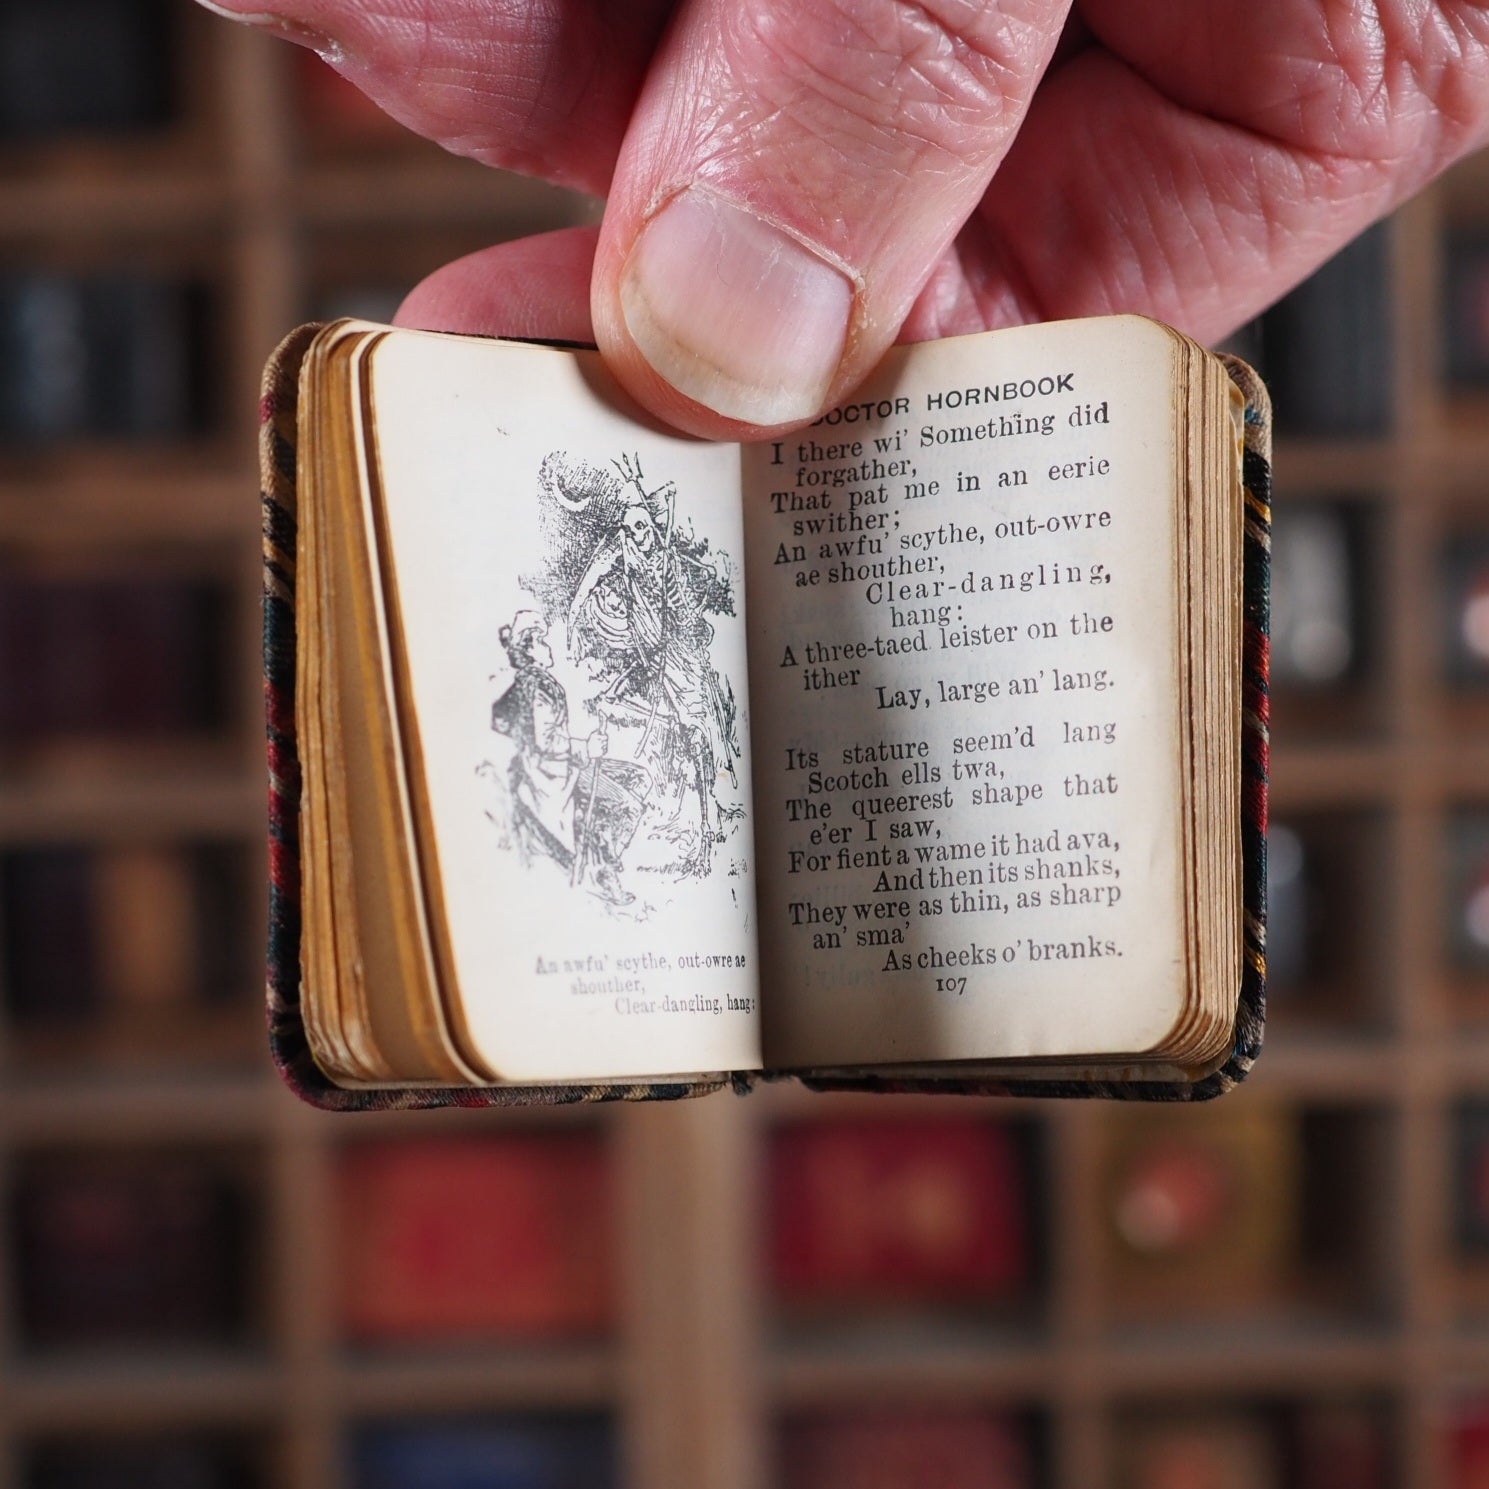 An awfu' scythe, out-owre ae
shouther,
Clear-dangling, hang:
DOCTOR HORNBOOK
I there wi' Something did
forgather,
That pat me in an eerie
swither;
An awfu' scythe, out-owre
ae shouther,
Clear-dangling,
hang:
A three-taed leister on the
ither
Lay, large an' lang.
Its stature seem'd lang
Scotch ells twa,
The queerest shape that
e'er I saw,
For fient a wame it had ava,
And then its shanks,
They were as thin, as sharp
an' sma'
As cheeks o' branks.
107